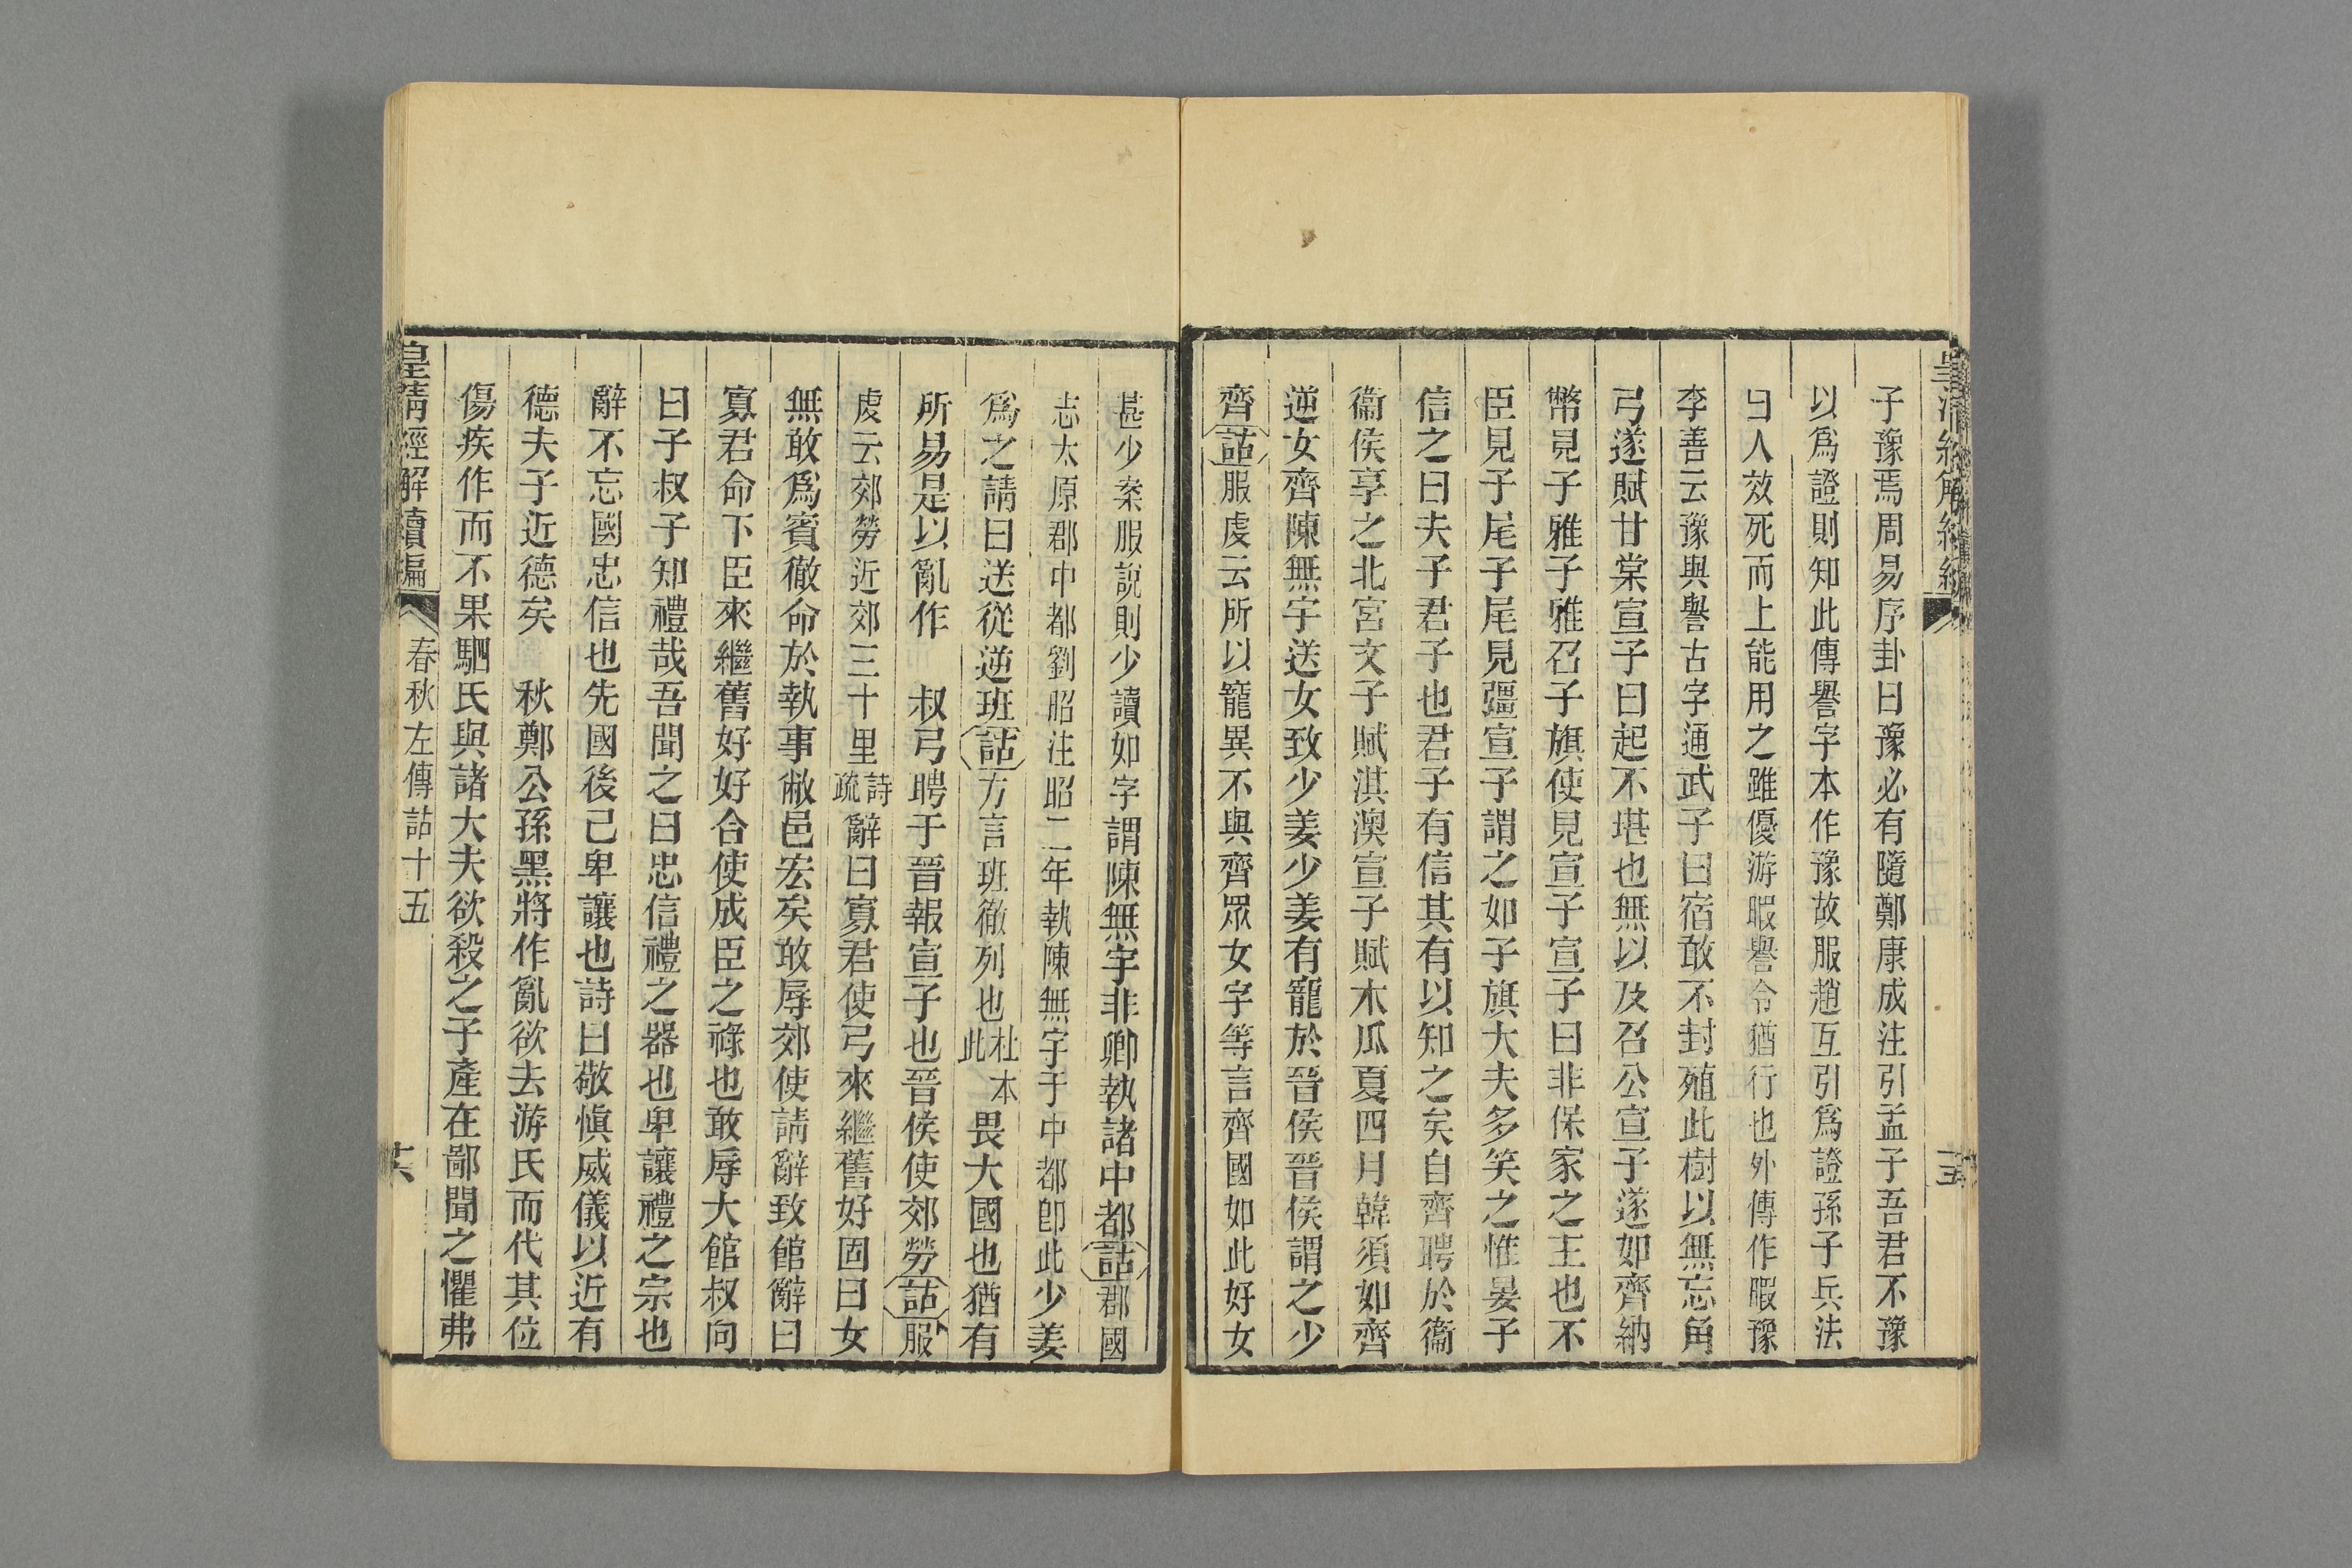 子豫焉周易序卦曰豫必有隨鄭康成注引孟子吾君不豫
以爲證則知此傳譽字本作豫故服趙互引爲證孫子兵法
曰人效死而上能用之雖優游暇譽令猶行也外傳作暇豫
李善云豫與譽古字通武子曰宿敢不封殖此樹以無忘角
弓遂賦甘棠宣子曰起不堪也無以及召公宣子遂如齊納
幣見子雅子雅召子旗使見宣子宣子曰非保家之主也不
臣見子尾子尾見彊宣子謂之如子旗大夫多笑之惟晏子
信之曰夫子君子也君子有信其有以知之矣自齊聘於衞
衞侯享之北宮文子賦淇澳宣子賦木瓜夏四月韓須如齊
逆女齊陳無宇送女致少姜少姜有寵於晉侯晉侯謂之少
齊詁服虔云所以寵異不與齊眾女字等言齊國如此好女
甚少案服說則少讀如字謂陳無宇非卿執諸中都詁郡國
志太原郡中都劉昭注昭二年執陳無宇于中都卽此少姜
爲之請曰送從逆班詁方言班徹列也杜本此畏大國也猶有
所易是以亂作　叔弓聘于晉報宣子也晉侯使郊勞詁服
虔云郊勞近郊三十里詩疏辭曰寡君使弓來繼舊好固曰女
無敢爲賓徹命於執事敝邑宏矣敢辱郊使請辭致館辭曰
寡君命下臣來繼舊好好合使成臣之祿也敢辱大館叔向
曰子叔子知禮哉吾聞之曰忠信禮之器也卑讓禮之宗也
辭不忘國忠信也先國後己卑讓也詩曰敬愼威儀以近有
德夫子近德矣　秋鄭公孫黑將作亂欲去游氏而代其位
傷疾作而不果駟氏與諸大夫欲殺之子產在鄙聞之懼弗
皇清經解續編　春秋左傳詁十五　十六